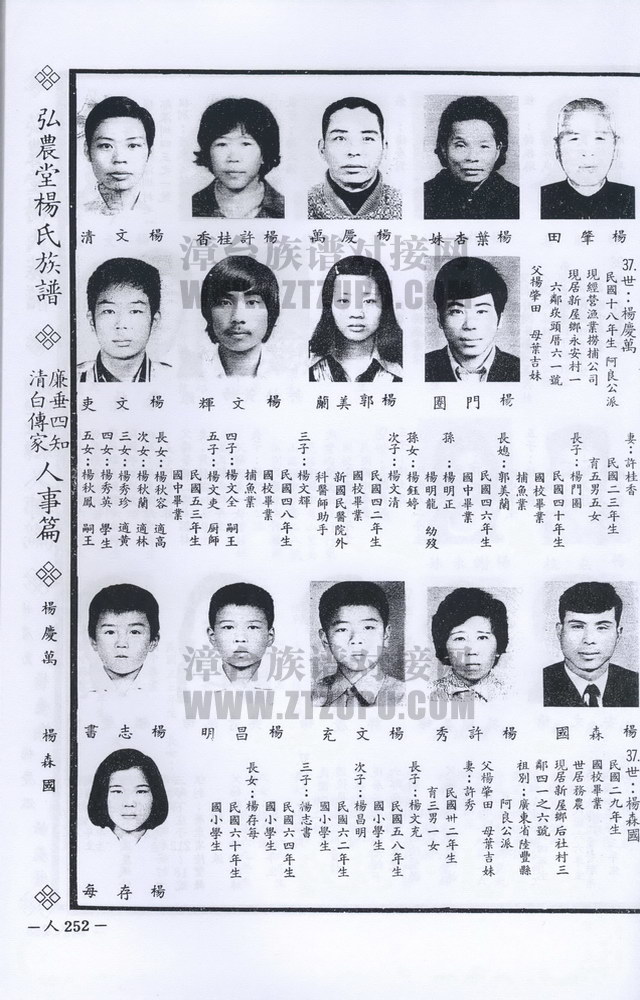 弘農堂楊氏族譜
廉垂四知
清白傳家
人事篇
楊慶萬
楊森國
楊肇田
楊葉杏妹
楊慶萬
楊許桂香
楊文清
37.世:楊慶萬
民國十八年生 阿良公派
現經營漁業撈捕公司
現居新屋鄉永安村一
六鄰崁頭厝六一號
父楊肇田 母葉吉妹
楊門圍
楊郭美蘭
楊文輝
楊文吏
妻:許桂香
民國二三年生
育五男五女
長子:楊門圍
民國四十年生
國校畢業
捕魚業
長媳:郭美蘭
民國四六年生
國中畢業
孫:楊明正
楊明龍 幼歿
孫女:楊鈺婷
次子:楊文清
民國四二年生
國校畢業
新國民醫院外
科醫師助手
三子:楊文輝
民國四八年生
國校畢業
捕魚業
四子:楊文全 嗣王
五子:楊文吏 廚師
民國五三年生
國中畢業
長女:楊秋容 適高
次女:楊秋蘭 適林
三女:楊秀珍 適黃
四女:楊秀英 學生
五女:楊秋鳳 嗣王
楊森國
楊許秀
楊文充
楊昌明
楊志書
37.世:楊森國
民國二九年生
國校畢業
世居務農
現居新屋鄉后社村三
鄰四一之六號
祖別:廣東省陸豐縣
阿良公派
父楊肇田 母葉吉妹
妻:許秀
民國卅二年生
育三男一女
長子:楊文充
民國五八年生
國小學生
次子:楊昌明
民國六二年生
國小學生
三子:楊志書
民國六四年生
國小學生
長女:楊存每
民國六十年生
國小學生
楊存每
—人252—
漳台族谱对接网
WWW.ZTZUPU.COM
漳台族谱对接网
WWW.ZTZUPU.COM